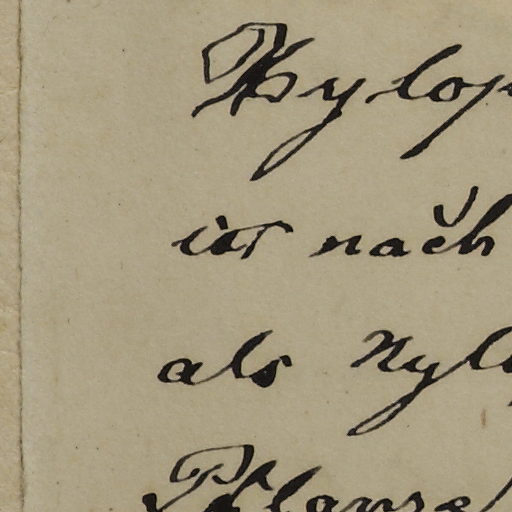 Xylop
ist nach
als Xylo
Pflanze